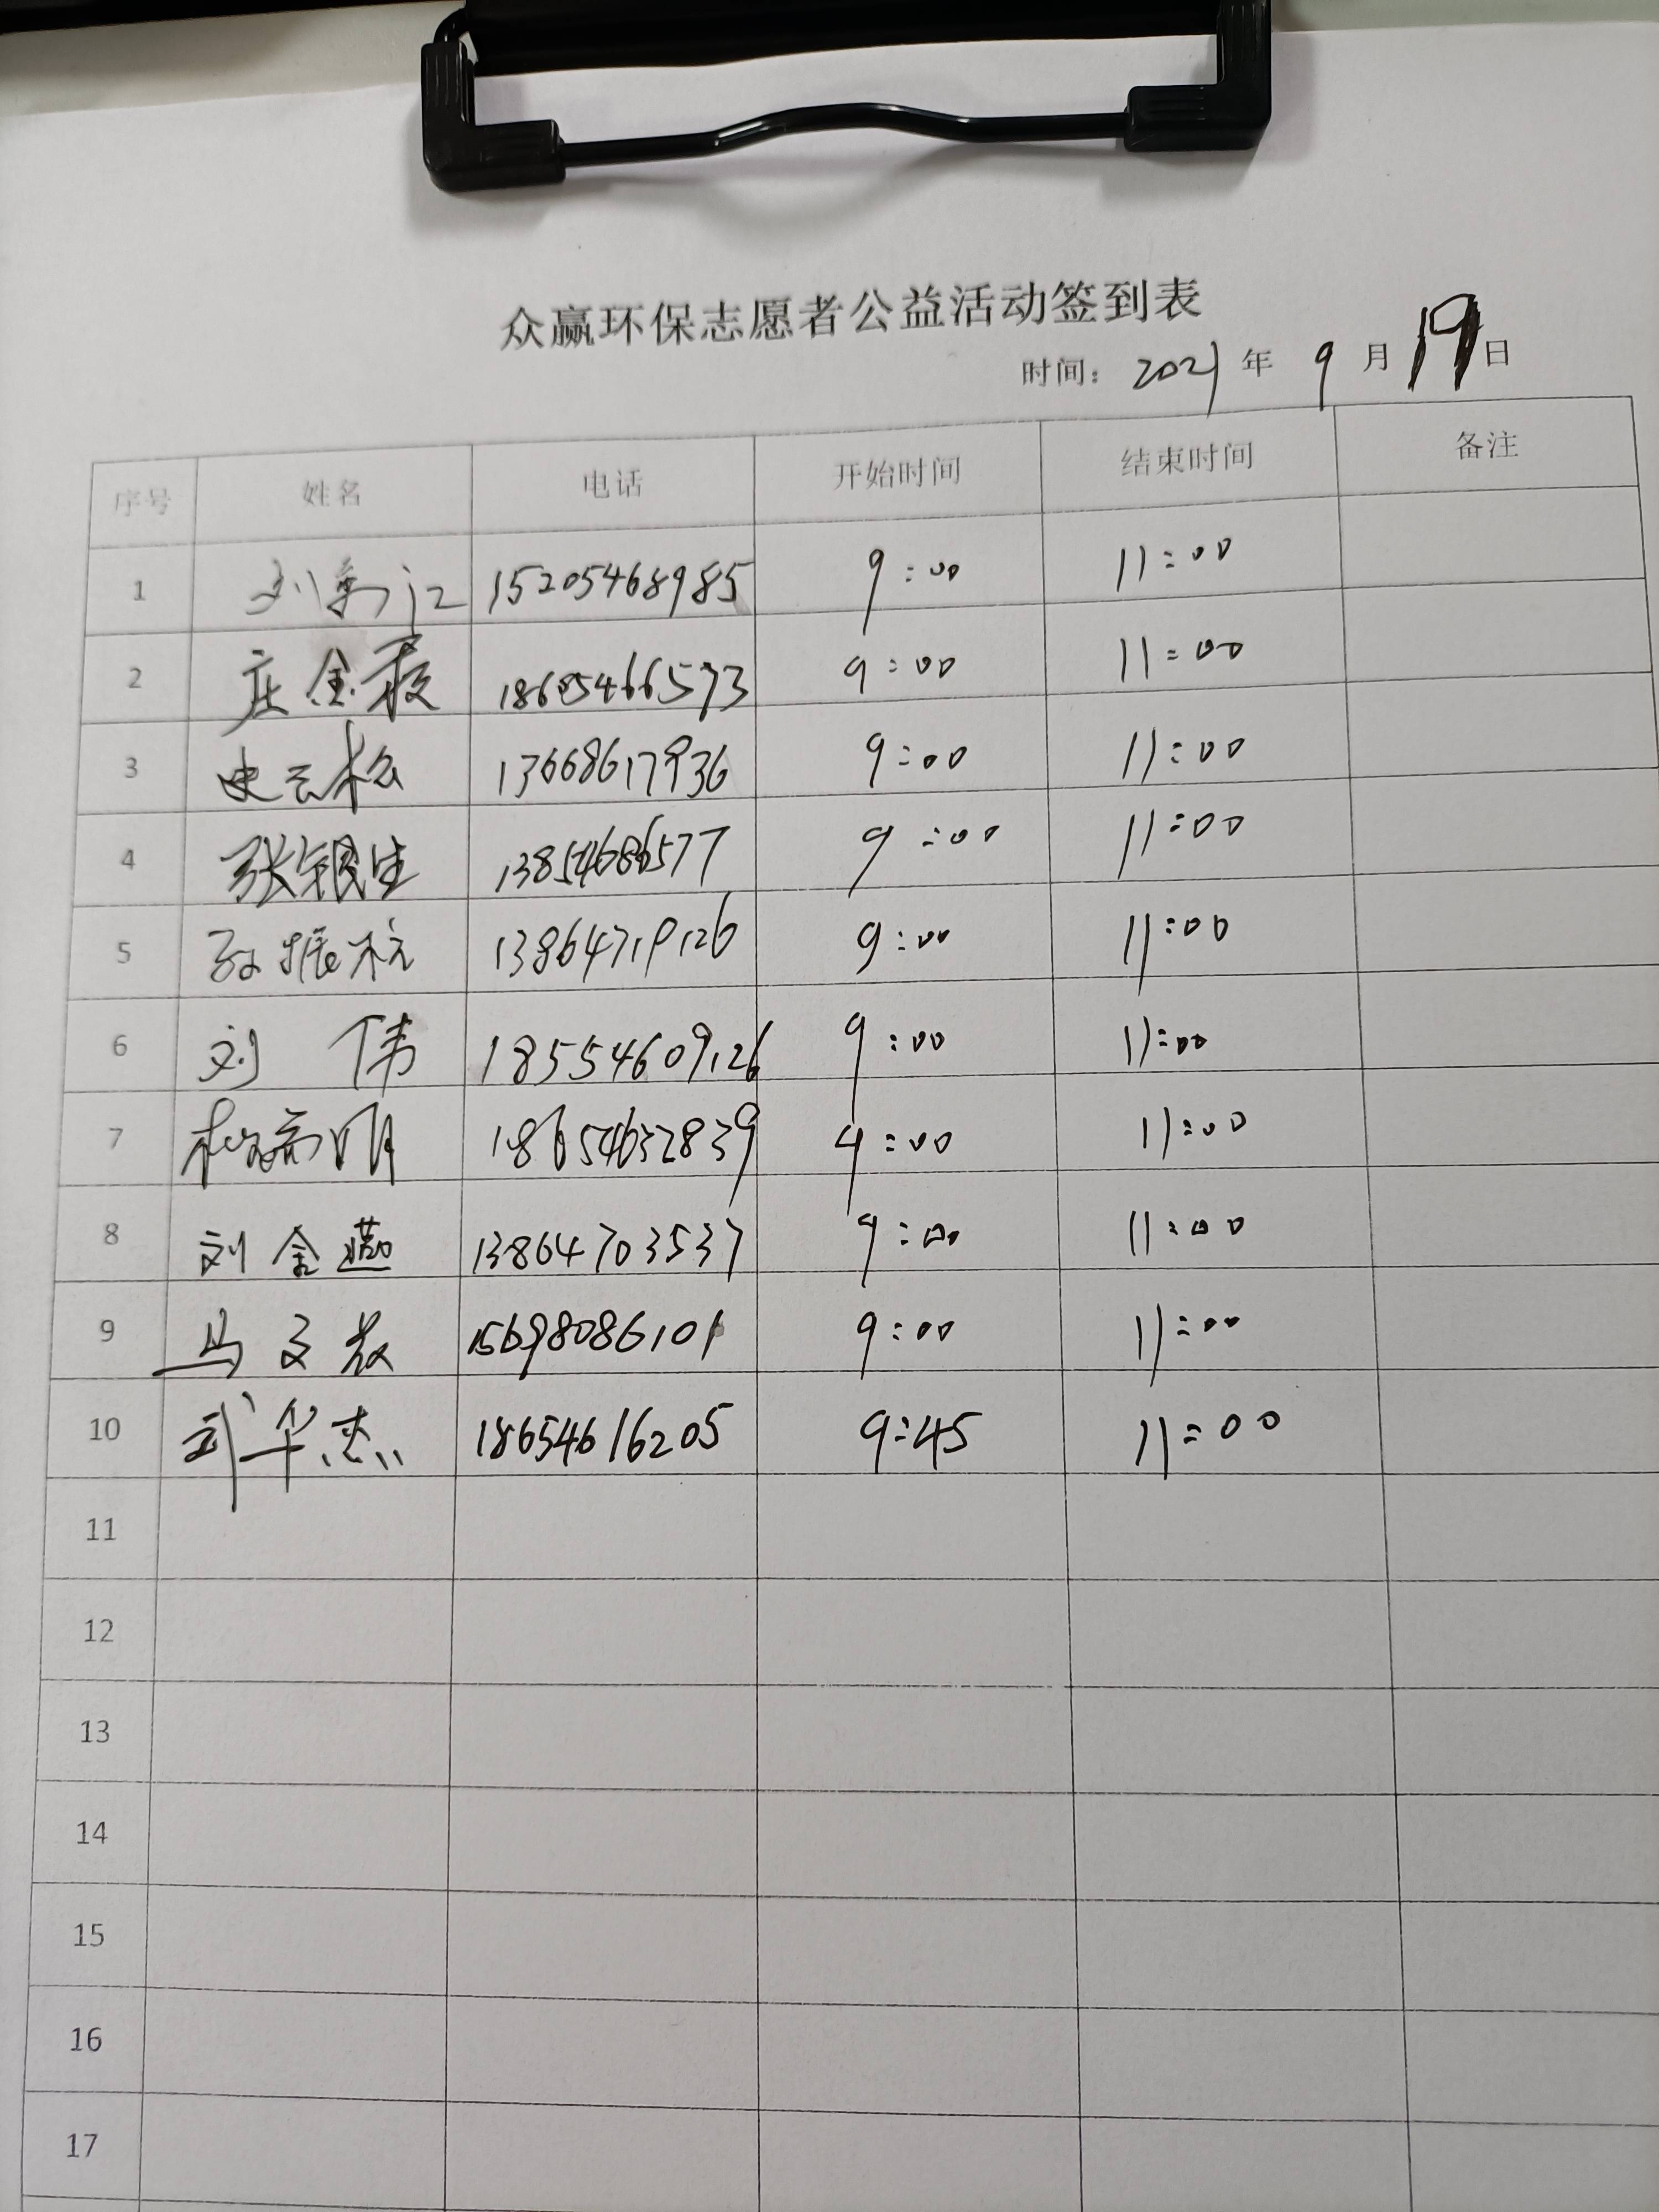 众赢环保志愿者公益活动签到表
时间： 2021 年 9 月 19 日
序号 姓名 电话 开始时间 结束时间 备注
1 刘 江 15205468985 9:00 11:00
2 庄金 18605466573 9:00 11:00
3 史云松 13668617936 9:00 11:00
4 张银生 13854686577 9:00 11:00
5 孙振 13864719126 9:00 11:00
6 刘 伟 18554609126 9:00 11:00
7 明 18654632839 9:00 11:00
8 刘金 13864703537 9:00 11:00
9 马文 15698086101 9:00 11:00
10 武华杰 18654616205 9:45 11:00
11
12
13
14
15
16
17